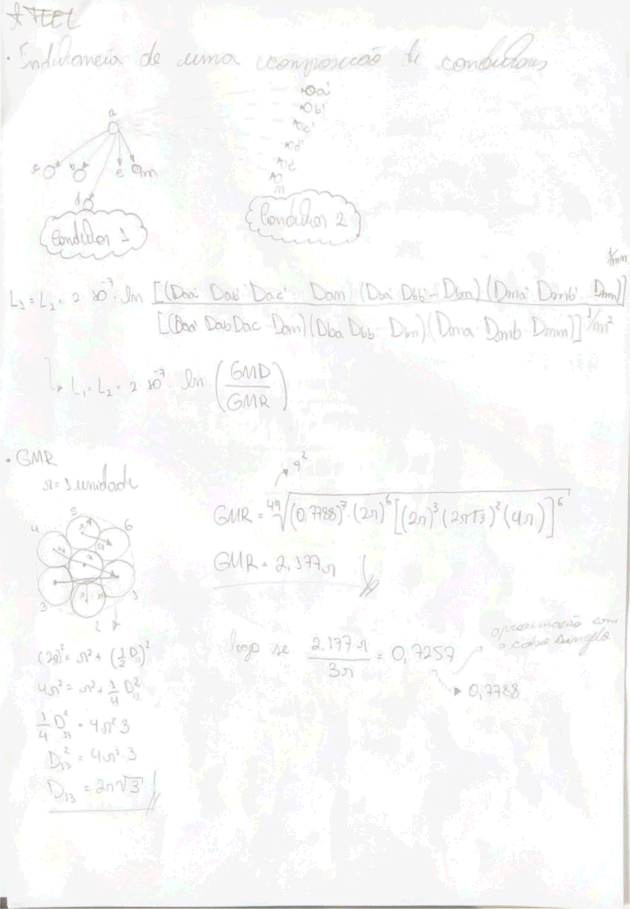 ATEEL
· Indutancia de uma composição de condutores
a
a'
b'
c b e m
d
m
Condutor 1
Condutor 2
L₁ = L₂ = 2·10⁻⁷·ln [(Daa' Dab' Dac' - Dam)(Dba' Dbb' - Dbm)(Dma' Dmb' Dmm)]^(1/mn)
[(Daa Dab Dac - Dam)(Dba Dbb - Dbm)(Dma Dmb Dmm)]^(1/m²)
↳ L₁ = L₂ = 2·10⁻⁷·ln (GMD/GMR)
· GMR
r = 1 unidade
5
4 6
3 1
2
GMR = ⁴⁹√((0,7788)⁷·(2r)⁶[(2r)³(2r√3)²(4r)]⁶)
GMR = 2,177r
(2r)² = r² + (1/2 D₁₃)²
4r² = r² + 1/4 D₁₃²
1/4 D₁₃² = 4r²·3
D₁₃² = 4r²·3
D₁₃ = 2r√3
logo se 2,177·r/3r = 0,7257
aproximação com
o cabo simples
→ 0,7788